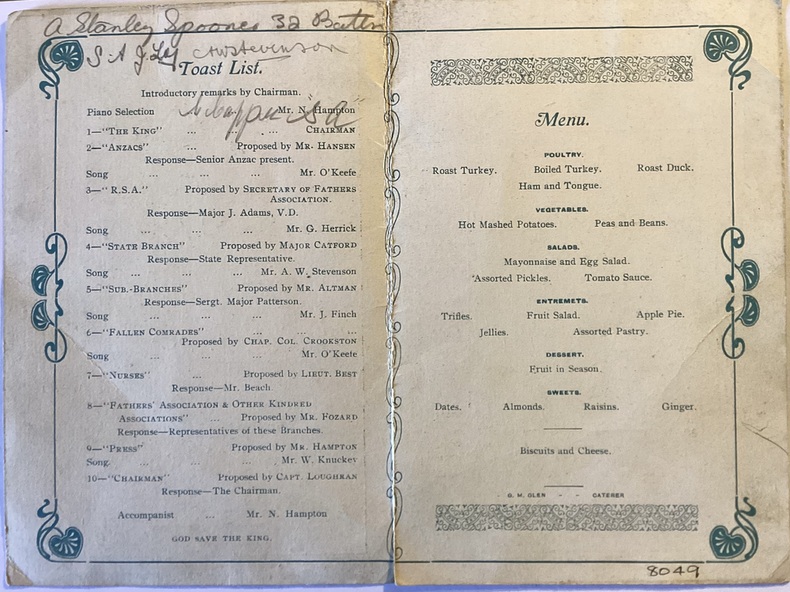 A Stanley Spooner 32 Battn
S. A. J.
Stevenson
Toast List.
Introductory remarks by Chairman.
Piano Selection Mr. N. Hampton
1—"THE KING" ... ... ... CHAIRMAN
2—"ANZACS" ... Proposed by MR. HANSEN
Response—Senior Anzac present.
Song ... ... ... Mr. O'Keefe
3—"R.S.A." Proposed by SECRETARY OF FATHERS
ASSOCIATION.
Response—Major J. Adams, V.D.
Song ... ... ... Mr. G. Herrick
4—"STATE BRANCH" Proposed by MAJOR CATFORD
Response—State Representative.
Song ... ... ... Mr. A. W. Stevenson
5—"SUB.-BRANCHES" Proposed by MR. ALTMAN
Response—Sergt. Major Patterson.
Song ... ... ... Mr. J. Finch
6—"FALLEN COMRADES" ... ... ...
Proposed by CHAP. COL. CROOKSTON
Song ... ... ... Mr. O'Keefe
7—"NURSES" ... Proposed by LIEUT. BEST
Response—Mr. Beach.
8—"FATHERS' ASSOCIATION & OTHER KINDRED
ASSOCIATIONS" ... Proposed by MR. FOZARD
Response—Representatives of these Branches.
9—"PRESS" Proposed by MR. HAMPTON
Song. ... ... ... Mr. W. Knuckey
10—"CHAIRMAN" Proposed by CAPT. LOUGHRAN
Response—The Chairman.
Accompanist ... Mr. N. Hampton
GOD SAVE THE KING.
Menu.
POULTRY.
Roast Turkey. Boiled Turkey. Roast Duck.
Ham and Tongue.
VEGETABLES.
Hot Mashed Potatoes. Peas and Beans.
SALADS.
Mayonnaise and Egg Salad.
Assorted Pickles. Tomato Sauce.
ENTREMETS.
Trifles. Fruit Salad. Apple Pie.
Jellies. Assorted Pastry.
DESSERT.
Fruit in Season.
SWEETS.
Dates. Almonds. Raisins. Ginger.
Biscuits and Cheese.
G. M. OLEN - - CATERER
8049